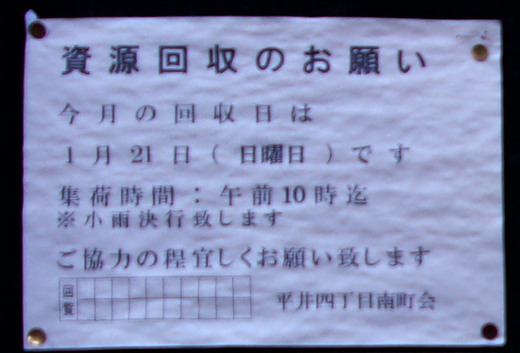 資源回収のお願い
今月の回収日は
1月21日(日曜日)です
集荷時間:午前10時迄
※小雨決行致します
ご協力の程宜しくお願い致します
回覧
平井四丁目南町会